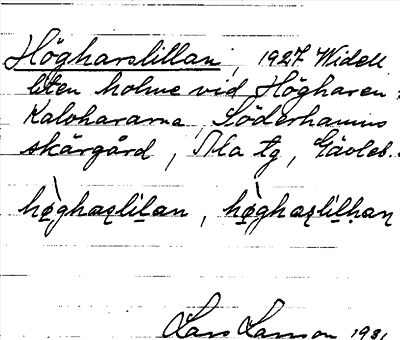 Högharslillan, 1927 Widell
liten holme vid Högharen i
Kalvhararna, Söderhamns
skärgård, Ma tg, Gävleb.
hø̀ghaʂlilan, hø̀ghaʂlilhaɳ
Lars Larsson 1931